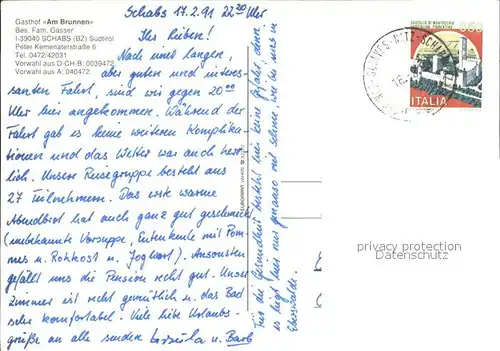 Gasthof «Am Brunnen»
Bes. Fam. Gasser
I-39040 SCHABS (BZ) Südtirol
Peter Kemenaterstraße 6
Tel. 0472/42031
Vorwahl aus D-CH-B: 0039472
Vorwahl aus A: 040472
Schabs 17.2.91 22³⁰ Uhr
Ihr Lieben!
Nach einer langen,
aber guten und interes-
santen Fahrt, sind wir gegen 20⁰⁰
Uhr hier angekommen. Während der
Fahrt gab es keine weiteren Komplika-
tionen und das Wetter war auch herr-
lich. Unsere Reisegruppe besteht aus
27 Teilnehmern. Das erste warme
Abendbrot hat auch ganz gut geschmeckt
(unbekannte Vorsuppe, Entenkeule mit Pom-
mes u. Rohkost u. Joghurt). Ansonsten
gefällt uns die Pension recht gut. Unser
Zimmer ist recht gemütlich u. das Bad
sehr komfortabel. Viele liebe Urlaubs-
grüße an alle senden u. Barb
Für die Gesundheit besteht hier keine Gefahr, denn
es liegt hier nur genauso viel Schnee, wie bei uns in
Eberswalde.
CASTELLO DI MONTECCHIO
CASTIGLION FIORENTINO
ITALIA
privates Sammlerarchiv
protected copyright
Datenschutz